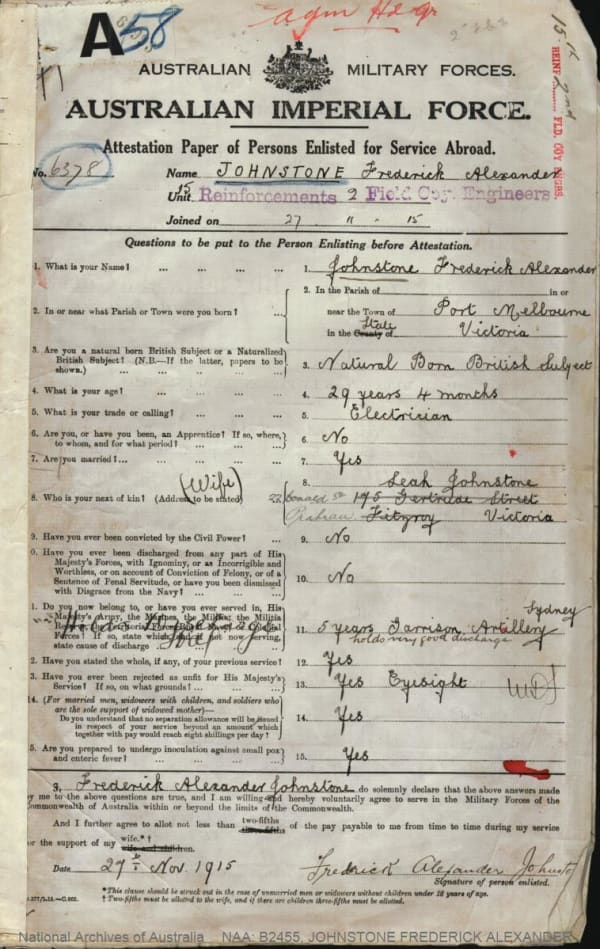 agm Hd qr
A 58
AUSTRALIAN MILITARY FORCES.
AUSTRALIAN IMPERIAL FORCE.
Attestation Paper of Persons Enlisted for Service Abroad.
No. 6378 Name JOHNSTONE Frederick Alexander
Unit 15 Reinforcements 2 Field Coy. Engineers
Joined on 27 . 11 . 15
REINF ........ FLD. COY ENGRS.
Questions to be put to the Person Enlisting before Attestation.
1. What is your Name? ... ... ... ... 1. Johnstone Frederick Alexander
2. In or near what Parish or Town were you born? ... 2. In the Parish of in or
near the Town of Port Melbourne
in the County State of Victoria
3. Are you a natural born British Subject or a Naturalized British Subject? (N.B.—If the latter, papers to be shown.) ... 3. Natural Born British Subject
4. What is your age? ... ... ... 4. 29 years 4 months
5. What is your trade or calling? ... ... 5. Electrician
6. Are you, or have you been, an Apprentice? If so, where, to whom, and for what period? ... 6. No
7. Are you married?... ... ... ... 7. Yes
8. Who is your next of kin? (Address to be stated) (Wife) 8. Leah Johnstone
22 Donald St 175 Gertrude Street
Prahran Fitzroy Victoria
9. Have you ever been convicted by the Civil Power? ... 9. No
0. Have you ever been discharged from any part of His Majesty's Forces, with Ignominy, or as Incorrigible and Worthless, or on account of Conviction of Felony, or of a Sentence of Penal Servitude, or have you been dismissed with Disgrace from the Navy? ... 10. No
1. Do you now belong to, or have you ever served in, His Majesty's Army, the Marines, the Militia, the Militia Forces? If so, state which, and if not now serving, state cause of discharge 11. 5 years Garrison Artillery Sydney
holds very good discharge
2. Have you stated the whole, if any, of your previous service? 12. Yes
3. Have you ever been rejected as unfit for His Majesty's Service? If so, on what grounds? ... 13. Yes Eyesight
14. (For married men, widowers with children, and soldiers who are the sole support of widowed mother)—
Do you understand that no separation allowance will be issued in respect of your service beyond an amount which together with pay would reach eight shillings per day? ... 14. Yes
5. Are you prepared to undergo inoculation against small pox and enteric fever? ... 15. Yes
I, Frederick Alexander Johnstone do solemnly declare that the above answers made
by me to the above questions are true, and I am willing and hereby voluntarily agree to serve in the Military Forces of the
Commonwealth of Australia within or beyond the limits of the Commonwealth.
And I further agree to allot not less than two-fifths three-fifths of the pay payable to me from time to time during my service
for the support of my wife.*† wife and children.
Date 27th Nov. 1915 Frederick Alexander Johnsto
Signature of person enlisted.
*This clause should be struck out in the case of unmarried men or widowers without children under 18 years of age.
† Two-fifths must be allotted to the wife, and if there are children three-fifths must be allotted.
National Archives of Australia NAA: B2455, JOHNSTONE FREDERICK ALEXANDER